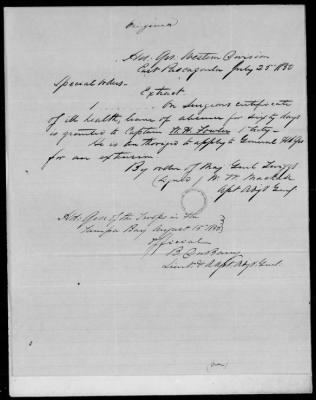 Hd. Qrs. Western Division
East Pascagoula July 25" 1850
Special orders
Extract
1 On Surgeons certificate
of ill health, leave of absence for sixty days
is granted to Captain W. H. Fowler 1 Arty.
He is authorized to apply to General Hd Qrs
for an extension
By order of Maj Genl Twiggs
(Signed) W. W. Mackall
Asst Adjt Genl
Hd. Qrs. of the Troops in Fla
Tampa Bay August 15" 1850
Official
Lieut & A Asst Adjt Genl
(over)